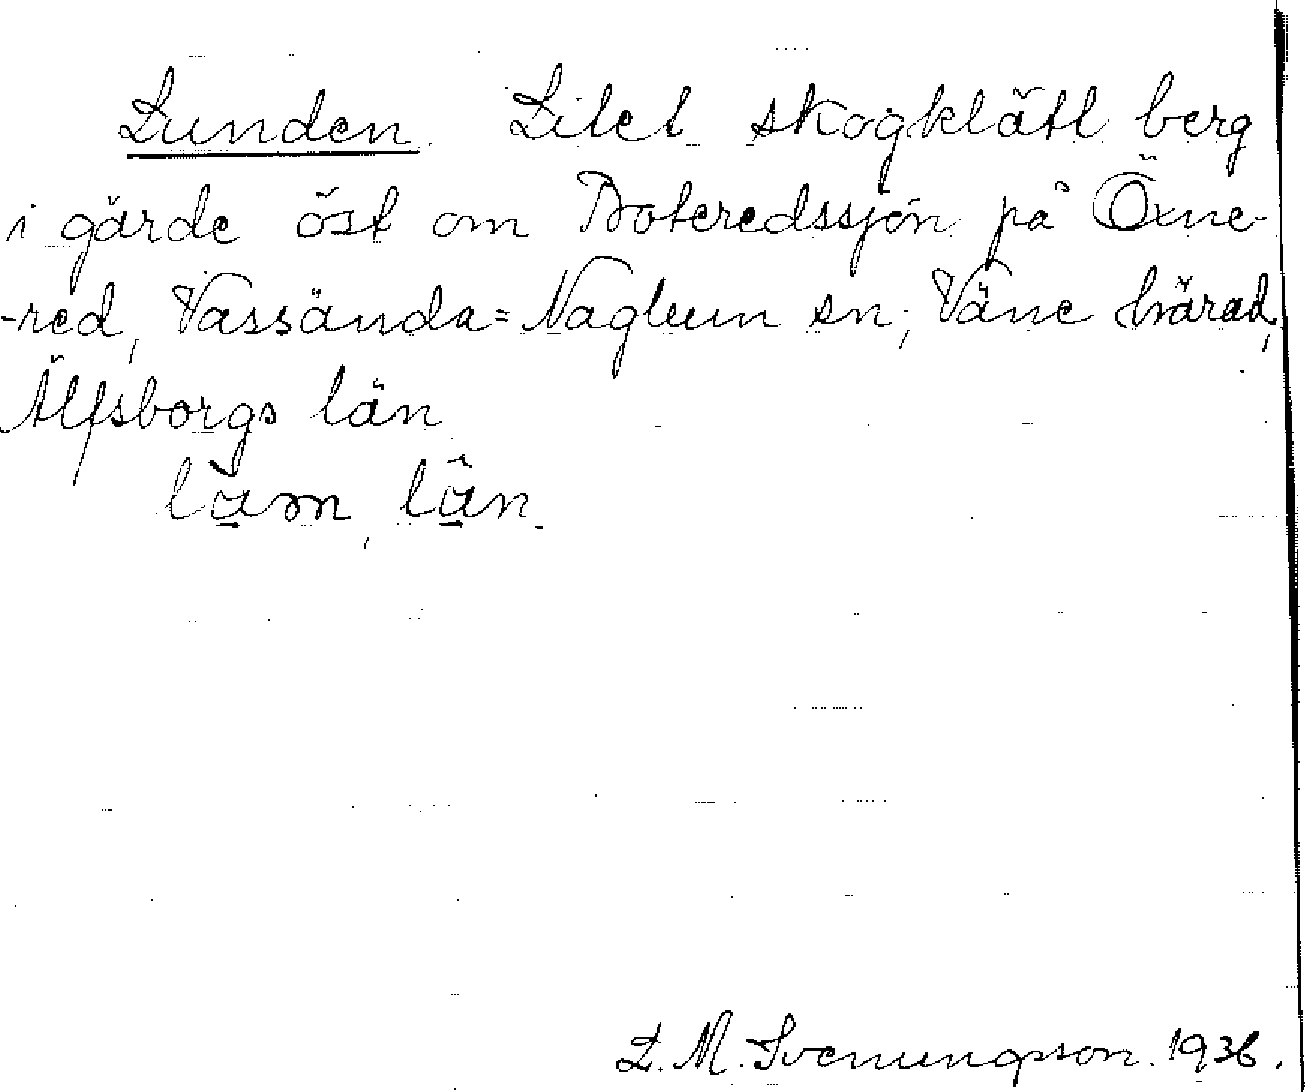 Lunden. Litet skogklätt berg
i gärde öst om Boteredssjön på Öxne-
-red, Vassända=Naglum sn, Väne härad,
Älfsborgs län
län.
L. M. Svenungsson. 1936.